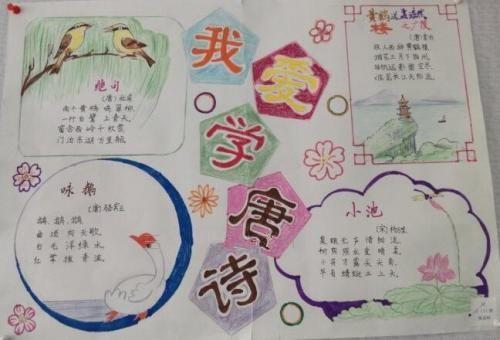 我
爱
学
唐
诗
绝句
(唐)杜甫
两个黄鹂鸣翠柳,
一行白鹭上青天。
窗含西岭千秋雪,
门泊东吴万里船。
黄鹤楼送孟浩然
之广陵
(唐)李白
故人西辞黄鹤楼,
烟花三月下扬州。
孤帆远影碧空尽,
唯见长江天际流。
咏鹅
(唐)骆宾王
鹅、鹅、鹅,
曲项向天歌。
白毛浮绿水,
红掌拨清波。
小池
(宋)杨万里
泉眼无声惜细流,
树阴照水爱晴柔。
小荷才露尖尖角,
早有蜻蜓立上头。